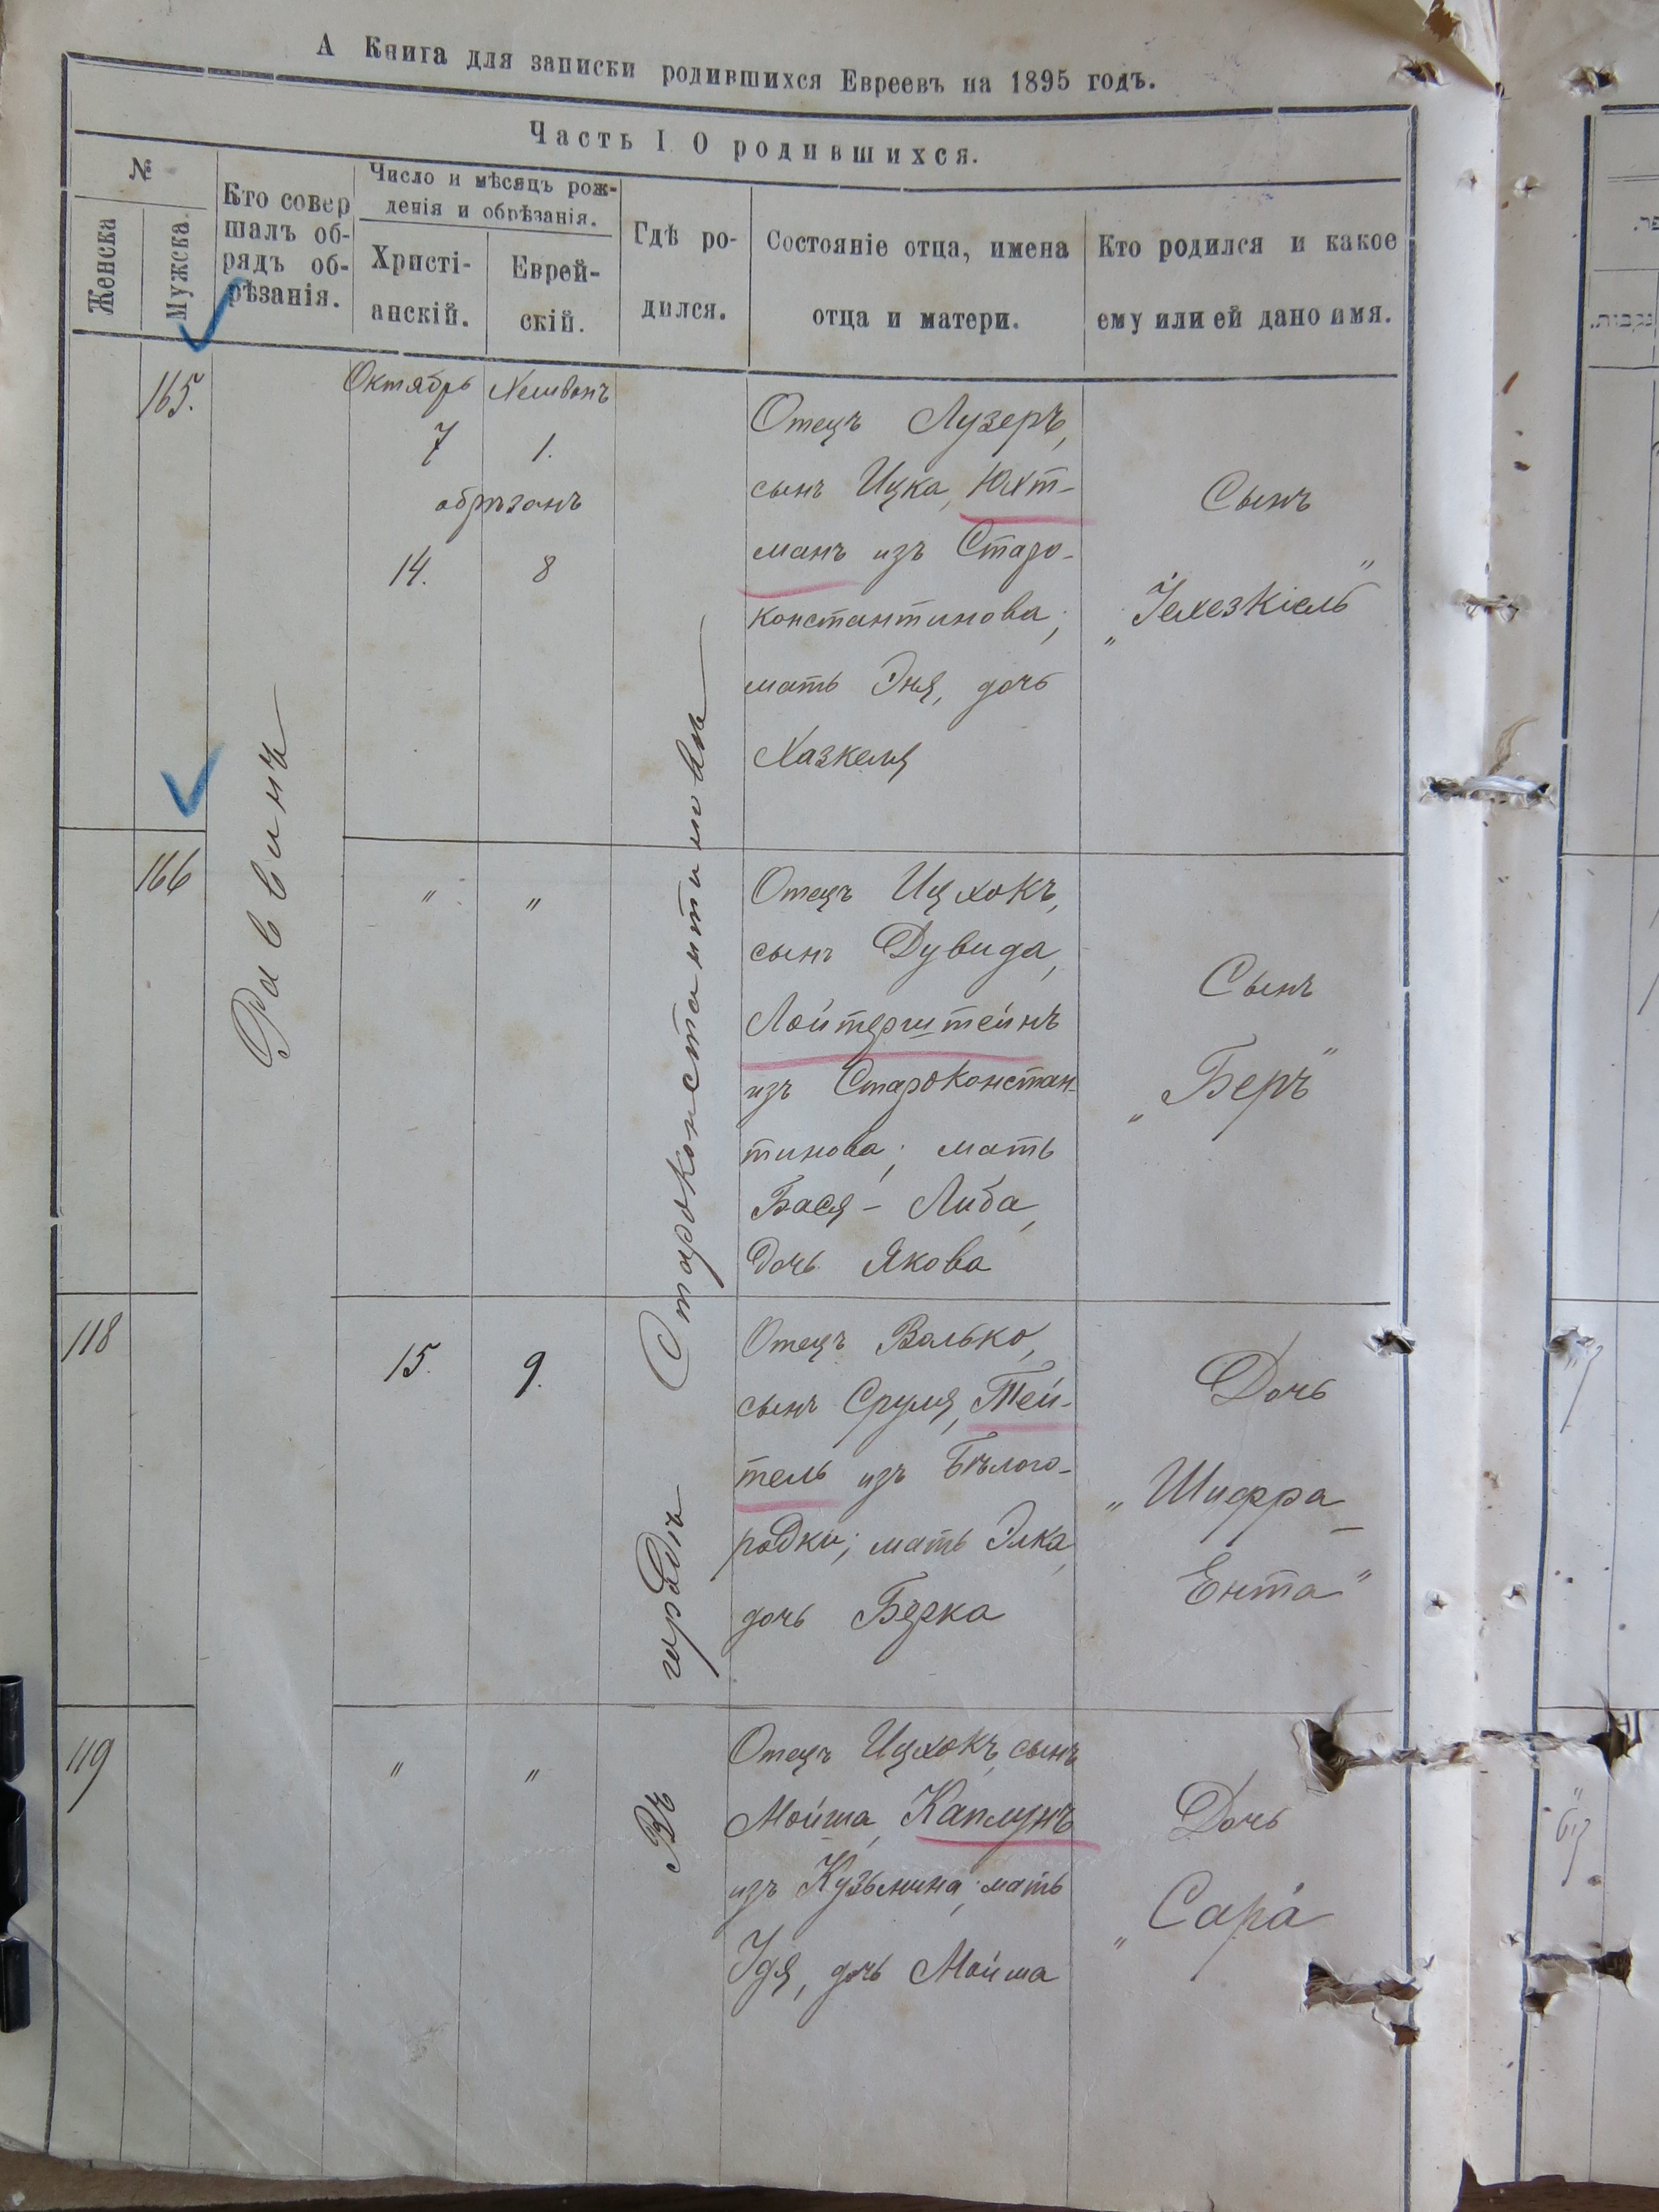 А Книга для записки родившихся Евреевъ на 1895 годъ.
Часть I О родившихся.
№
Женска
Мужска.
Кто совер
шалъ об-
рядъ об-
рѣзанія.
Число и мѣсяцъ рож-
денія и обрѣзанія.
Христі-
анскій.
Еврей-
скій.
Гдѣ ро-
дился.
Состояніе отца, имена
отца и матери.
Кто родился и какое
ему или ей дано имя.
Раввинъ
Въ городѣ Староконстантиновѣ
165.
Октябрь Хешванъ
7 1.
обрѣзанъ
14. 8
Отецъ Лузеръ,
сынъ Ицка, Юхт-
манъ изъ Старо-
константинова;
мать Эня, дочь
Хазкеля
Сынъ
„Іехезкіель"
166
" "
Отецъ Ицхокъ,
сынъ Дувида,
Лойтерштейнъ
изъ Староконстан-
тинова; мать
Бася - Либа,
дочь Якова
Сынъ
„Беръ"
118
15. 9.
Отецъ Валько,
сынъ Сруля, Тей-
тель изъ Бѣлого-
родки; мать Элка,
дочь Берка
Дочь
„Шифра-
Ента"
119
" "
Отецъ Ицхокъ, сынъ
Мойша, Каплунъ
изъ Кузьмина; мать
Удя, дочь Мойша
Дочь
„Сара